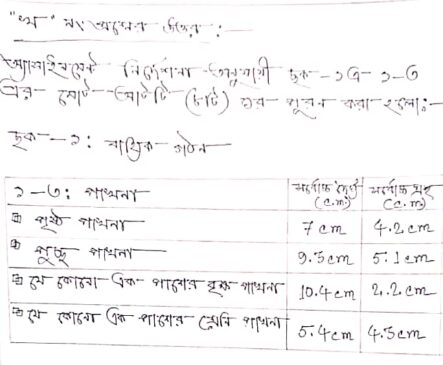 "খ" নং প্রশ্নের উত্তর :-
অ্যাসাইনমেন্ট নির্দেশনা অনুযায়ী ছক-১এ ১-৩
এর মোট আটটি (৮টি) ঘর পূরন করা হলো:-
ছক-১: বাহ্যিক গঠন
১-৩: পাখনা সর্বোচ্চ দৈর্ঘ্য (c.m.) সর্বোচ্চ প্রস্থ (c.m.)
পৃষ্ঠ পাখনা 7 cm 4.2 cm
পুচ্ছ পাখনা 9.5 cm 5.1 cm
যে কোনো এক পাশের বক্ষ পাখনা 10.4 cm 2.2 cm
যে কোনো এক পাশের শ্রোণি পাখনা 5.4 cm 4.5 cm